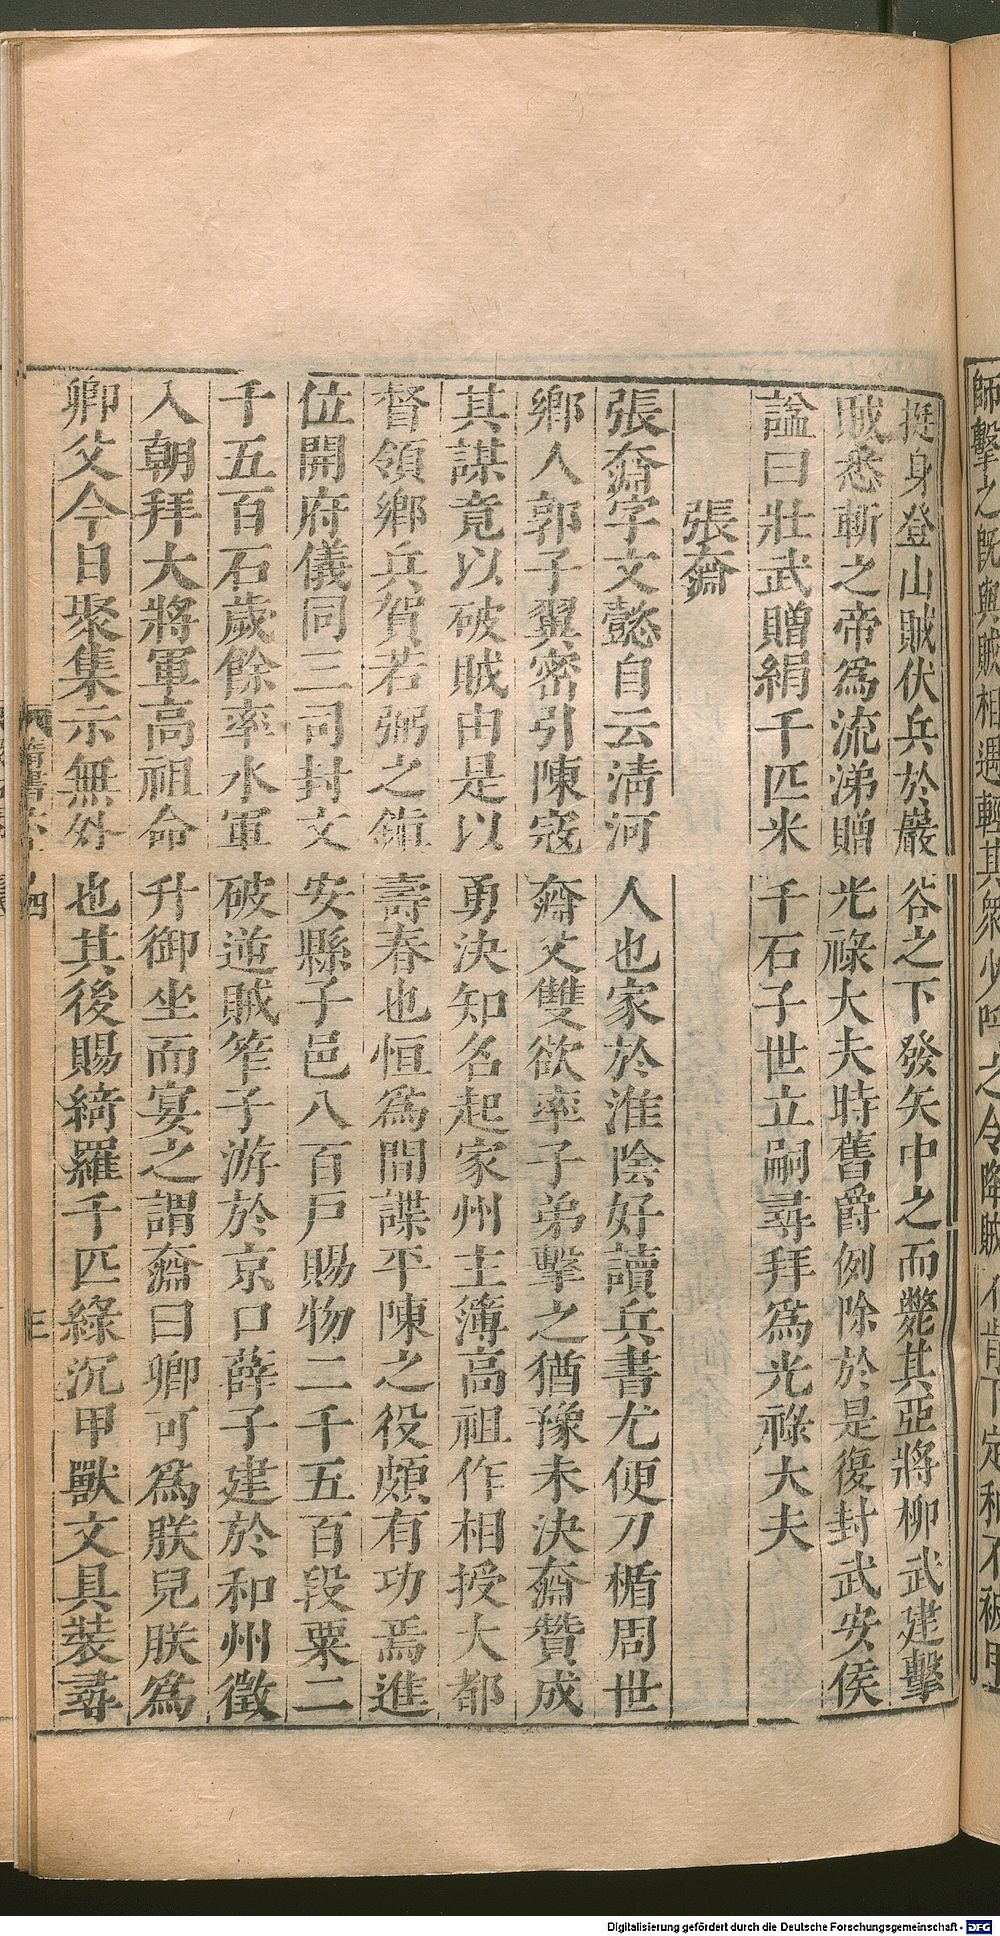 師擊之既與賊相遇輕其衆少呼之令降賊不肯下定和不被甲
挺身登山賊伏兵於巖谷之下發矢中之而斃其亞將柳武建擊
賊悉斬之帝爲流涕贈光祿大夫時舊爵例除於是復封武安侯
諡曰壯武贈絹千匹米千石子世立嗣尋拜爲光祿大夫
張奫
張奫字文懿自云淸河人也家於淮陰好讀兵書尤便刀楯周世
鄉人郭子翼密引陳寇奫父雙欲率子弟擊之猶豫未決奫贊成
其謀竟以破賊由是以勇決知名起家州主簿高祖作相授大都
督領鄉兵賀若弼之鎮壽春也恒爲間諜平陳之役頗有功焉進
位開府儀同三司封文安縣子邑八百戸賜物二千五百段粟二
千五百石歲餘率水軍破逆賊笮子游於京口薛子建於和州徵
入朝拜大將軍高祖命升御坐而宴之謂奫曰卿可爲朕兒朕爲
卿父今日聚集示無外也其後賜綺羅千匹綠沉甲獸文具裝尋
三
Digitalisierung gefördert durch die Deutsche Forschungsgemeinschaft - DFG